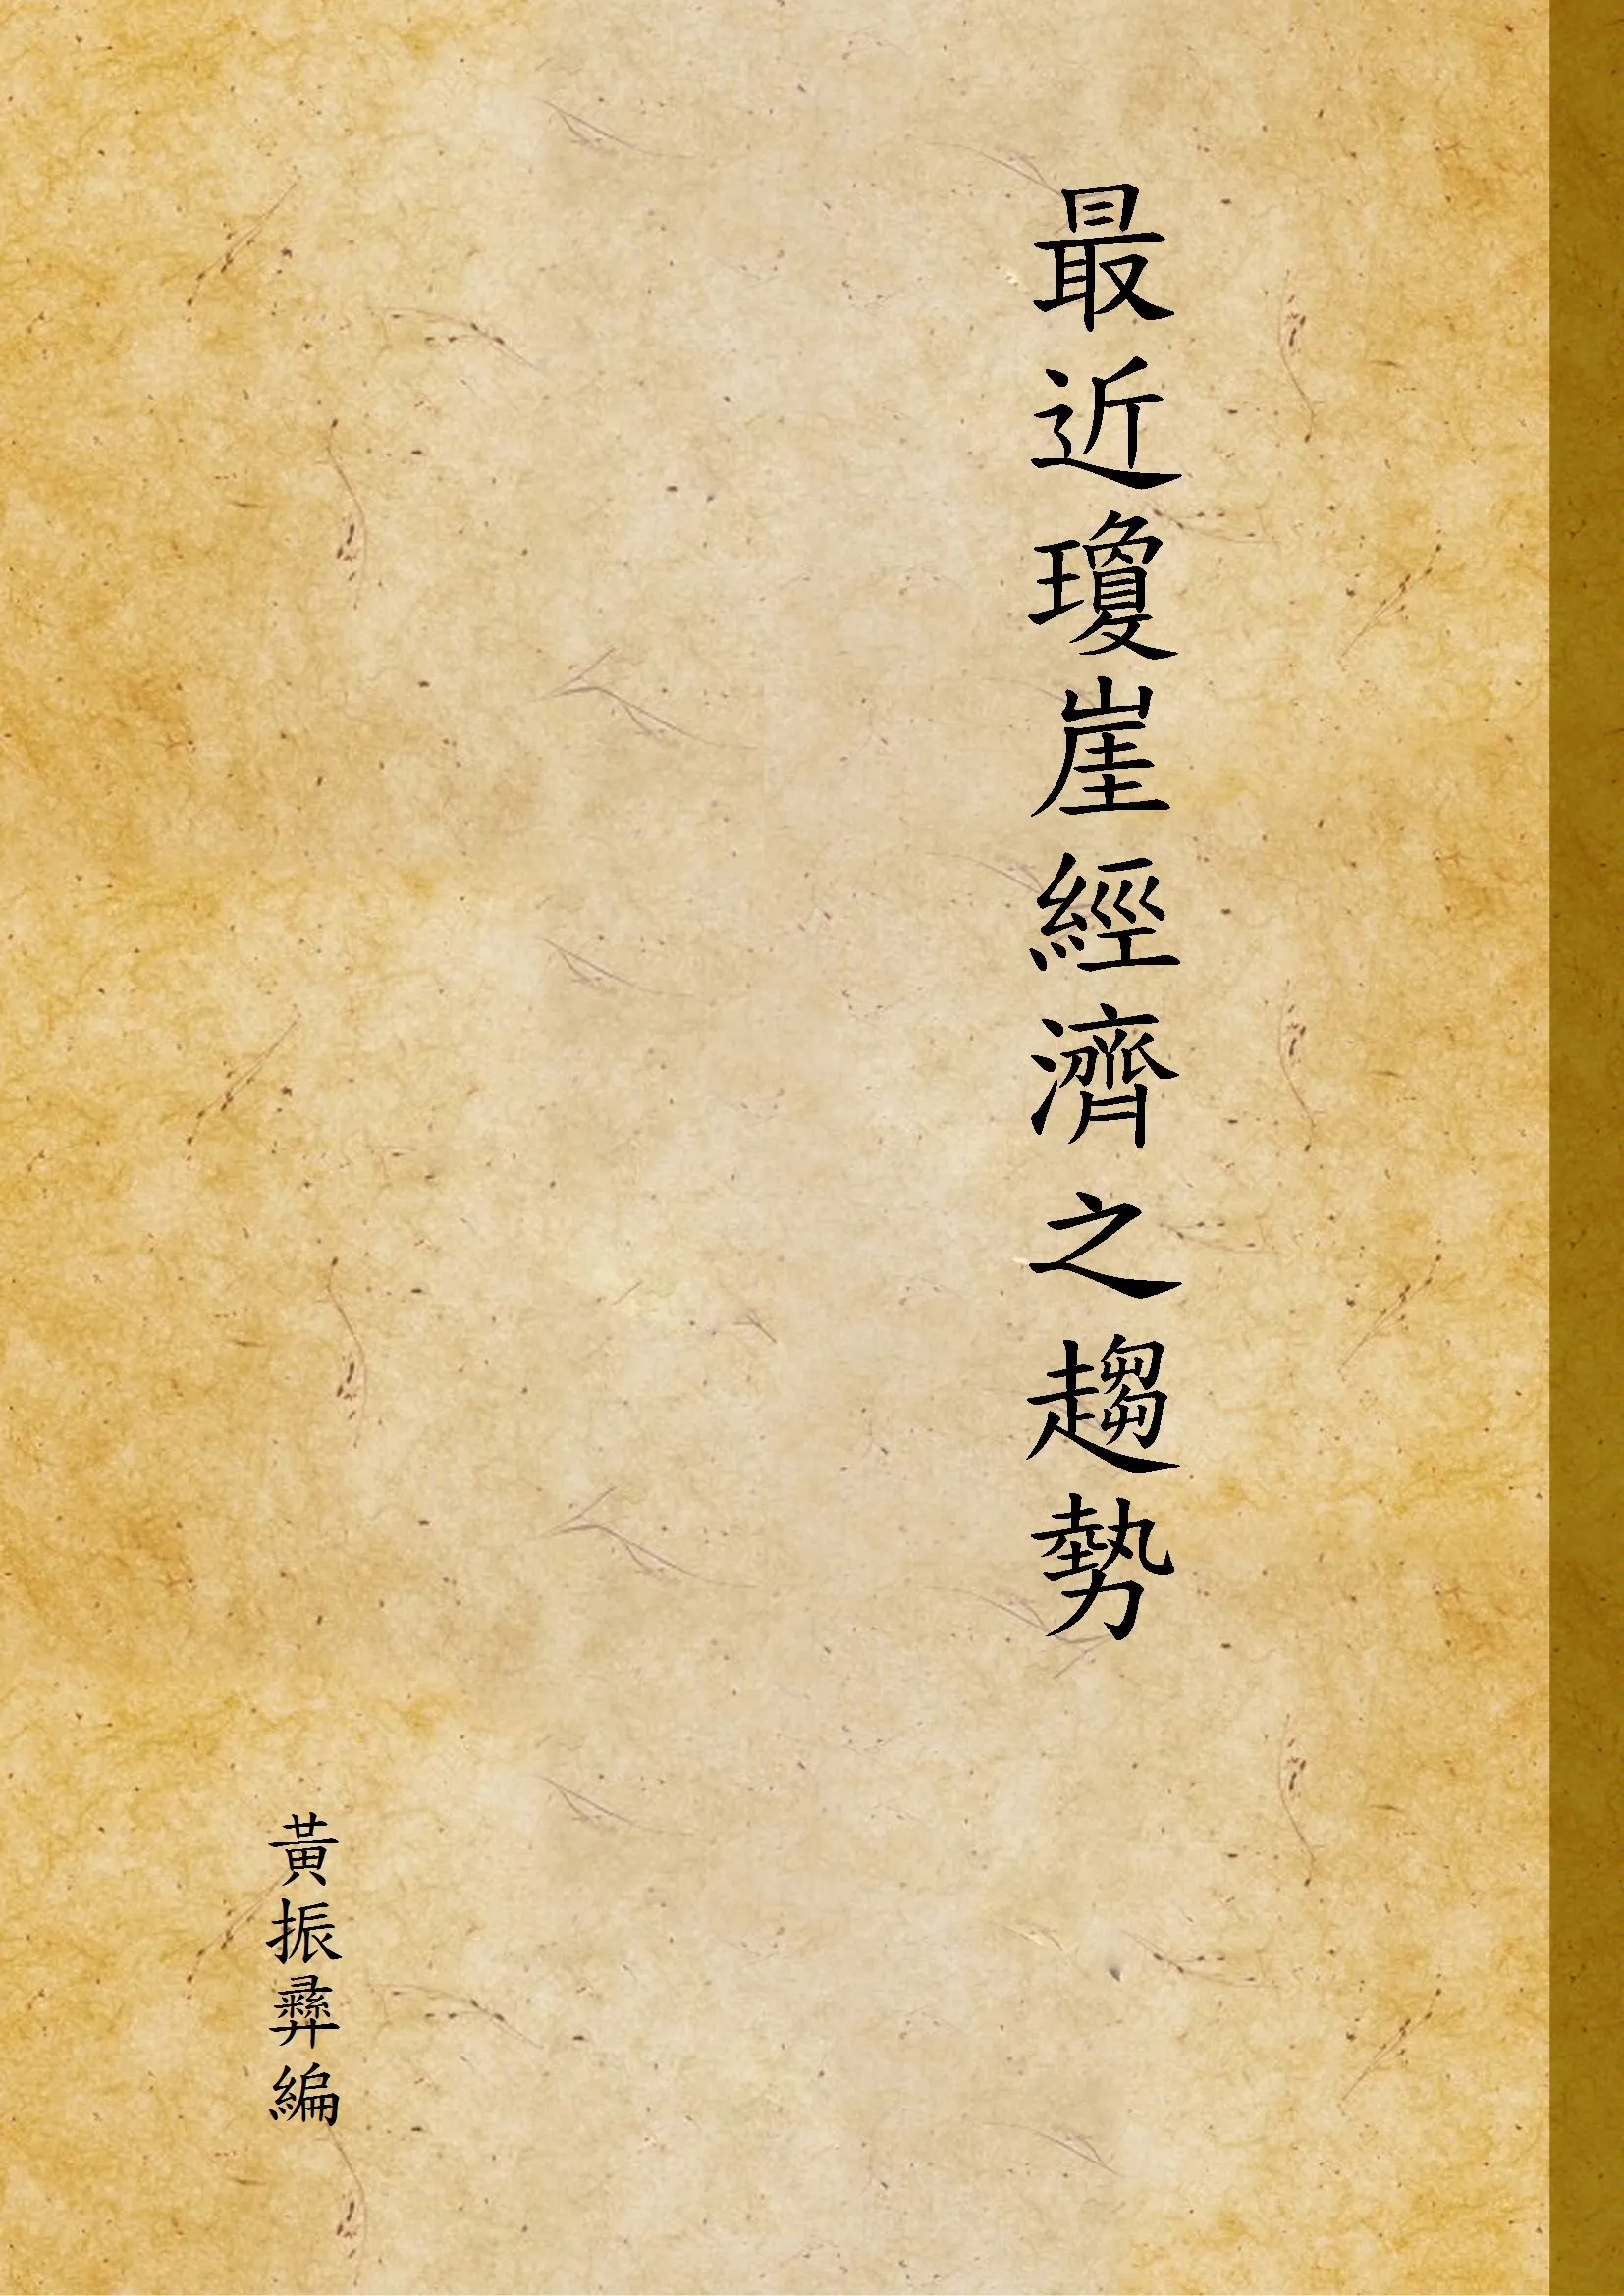 最近瓊崖經濟之趨勢
黃振彝編